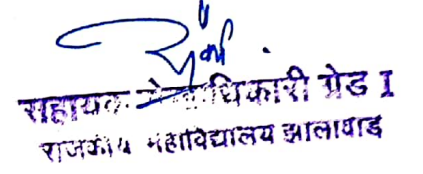 सहायक लेखाधिकारी ग्रेड I
राजकीय महाविद्यालय झालावाड